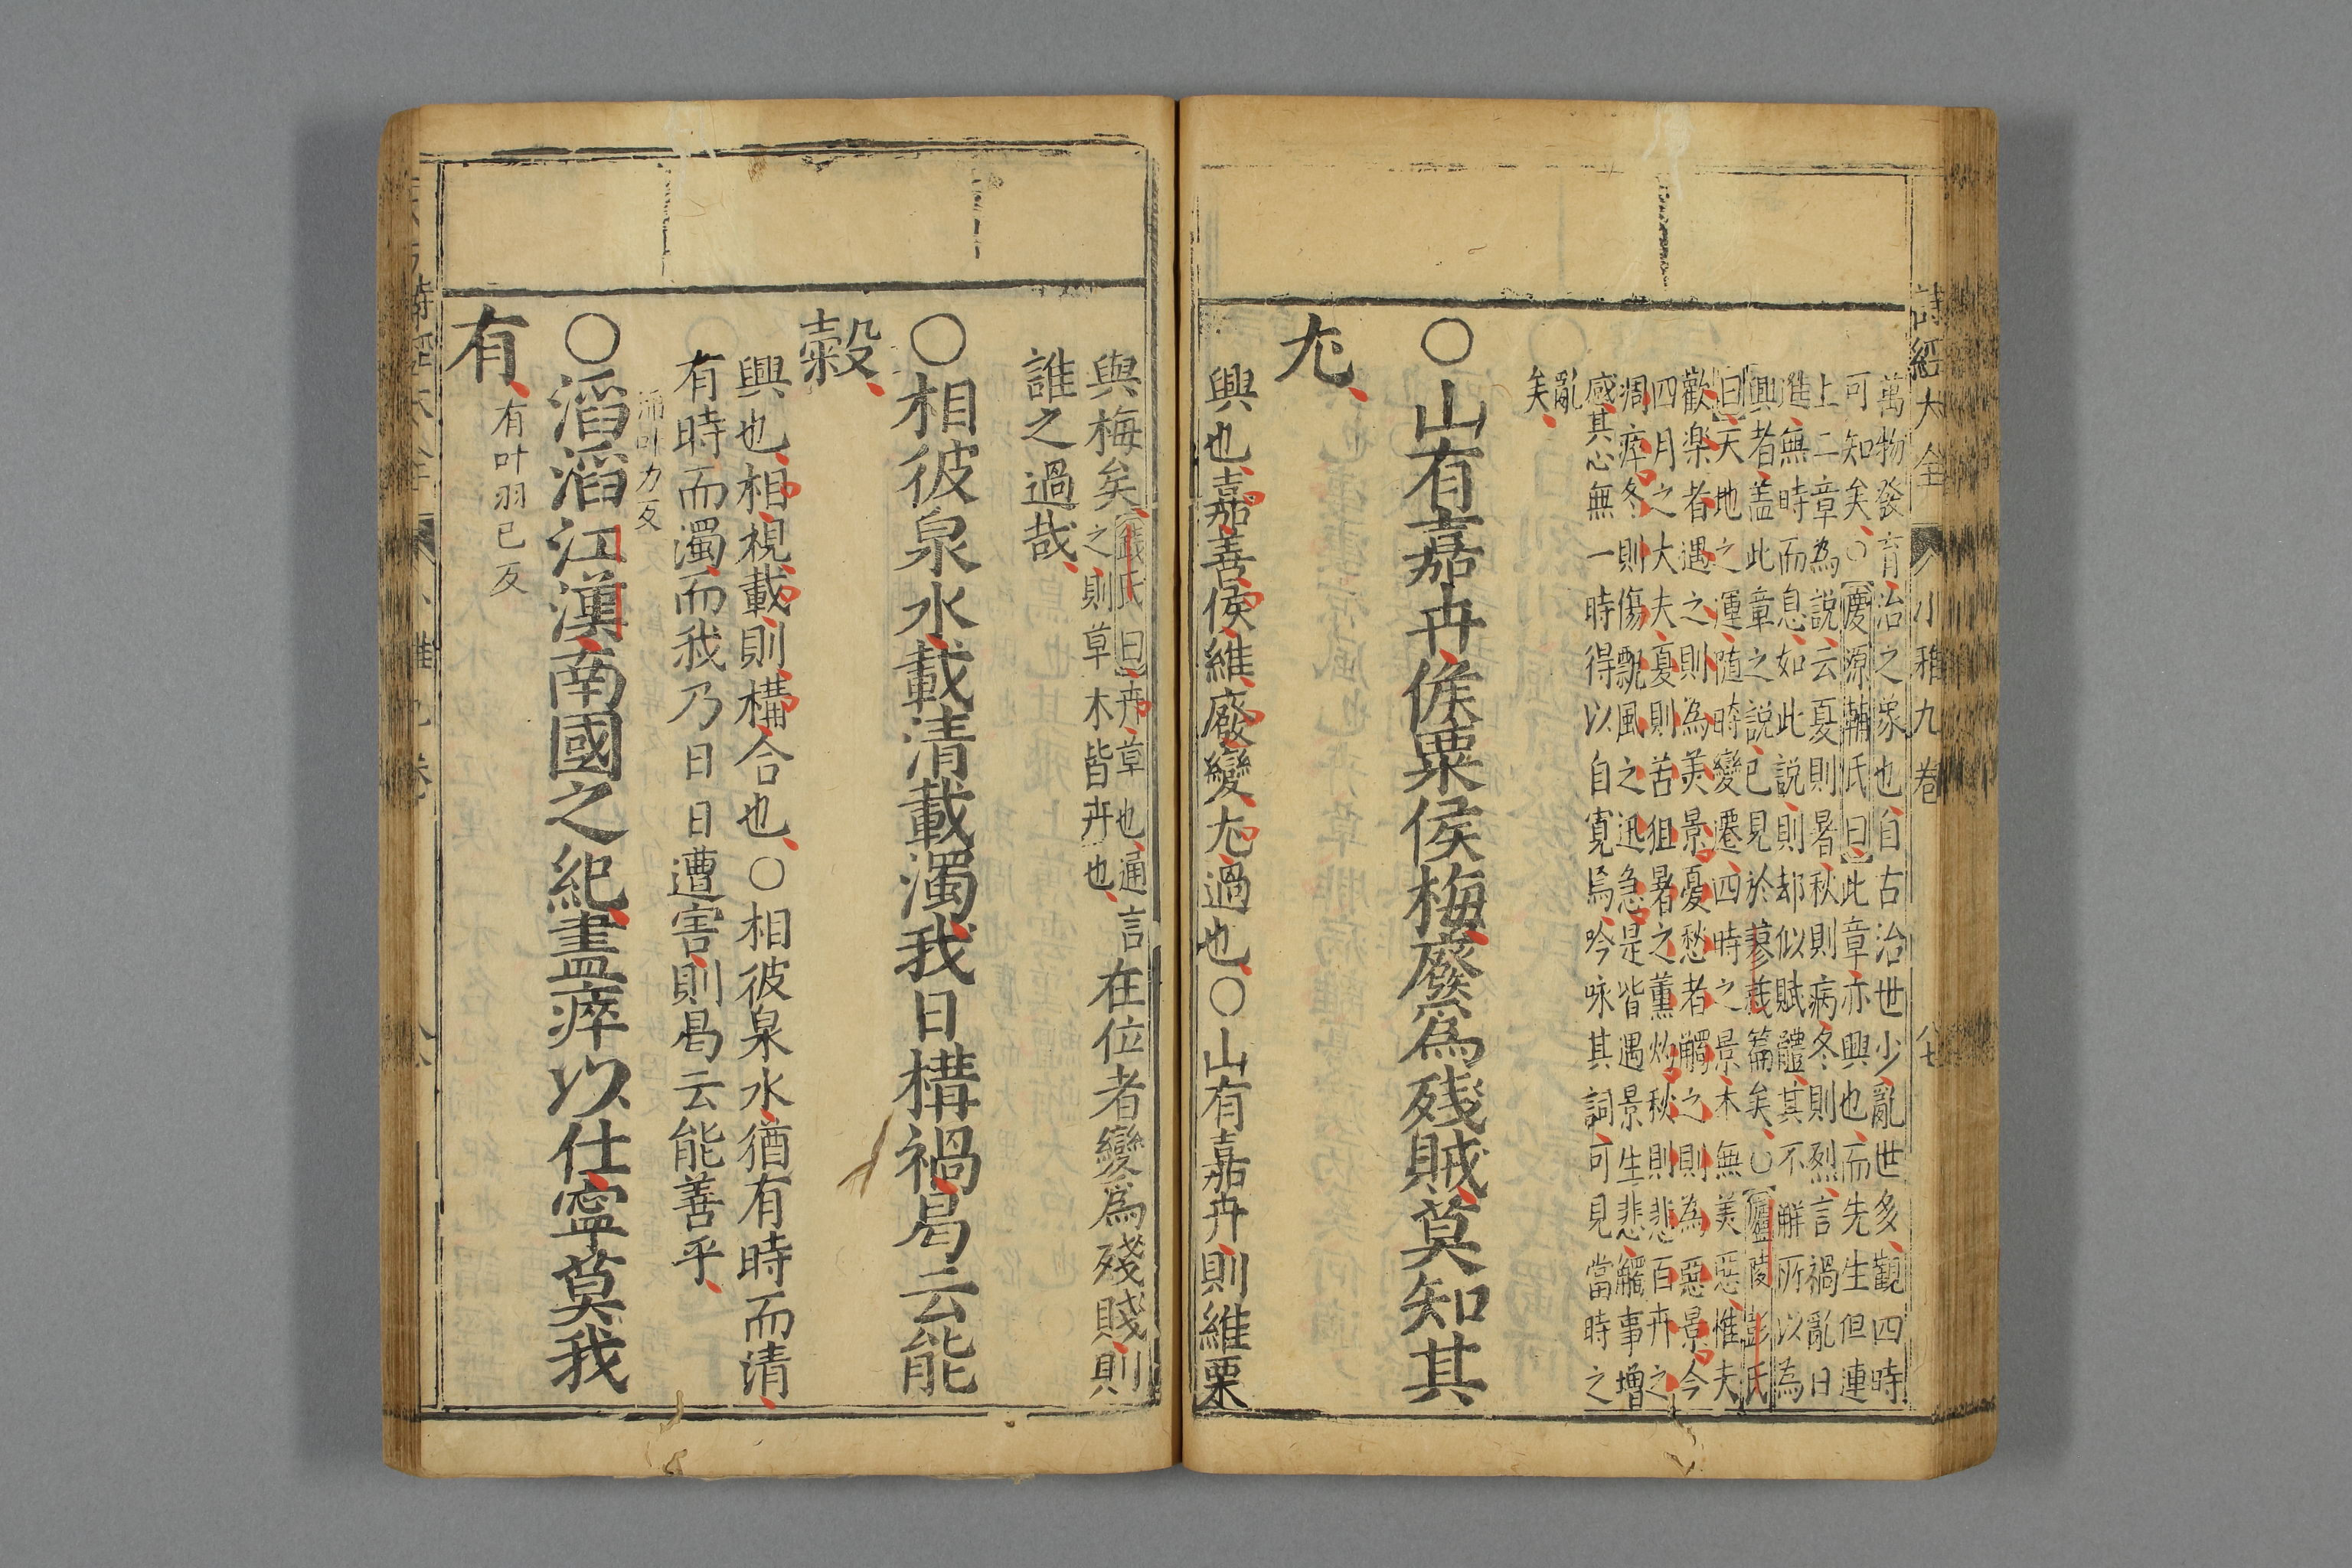 詩經大全 小雅九卷
萬物發育治之象也自古治世少亂世多觀四時
可知矣○慶源輔氏曰此章亦興也而先生但連
上二章為說云夏則暑秋則病冬則烈言禍亂日
進無時而息如此說則却似賦體其不觧所以為
興者盖此章之說已見於蓼莪篇矣○廬陵彭氏
曰天地之運隨時變遷四時之景本無美惡惟夫
歡楽者遇之則為美景憂愁者觸之則為惡景今
四月之大夫夏則苦徂暑之薰灼秋則悲百卉之
凋瘁冬則傷飄風之迅急是皆遇景生悲觸事增
感其心無一時得以自寬焉吟咏其詞可見當時之
亂
矣
○山有嘉卉侯栗侯梅廢爲殘賊莫知其
尤
興也嘉善侯維廢變尤過也○山有嘉卉則維栗
與梅矣錢氏曰卉草也通言
之則草木皆卉也在位者變爲殘賤則
誰之過哉
○相彼泉水載清載濁我日構禍曷云能
糓
興也相視載則構合也○相彼泉水猶有時而清
有時而濁而我乃日日遭害則曷云能善乎
沛叶力反
○滔滔江漢南國之紀盡瘁以仕寧莫我
有有叶羽已反